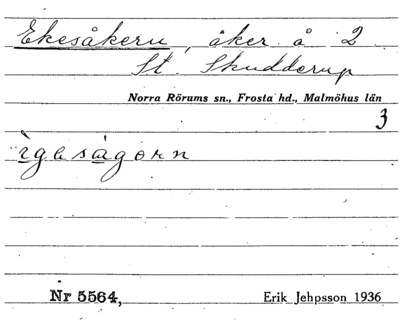 Ekesåkern, åker å 2
St. Skudderup
Norra Rörums sn., Frosta hd., Malmöhus län
3
ìgasàgorn
Nr 5564,
Erik Jehpsson 1936